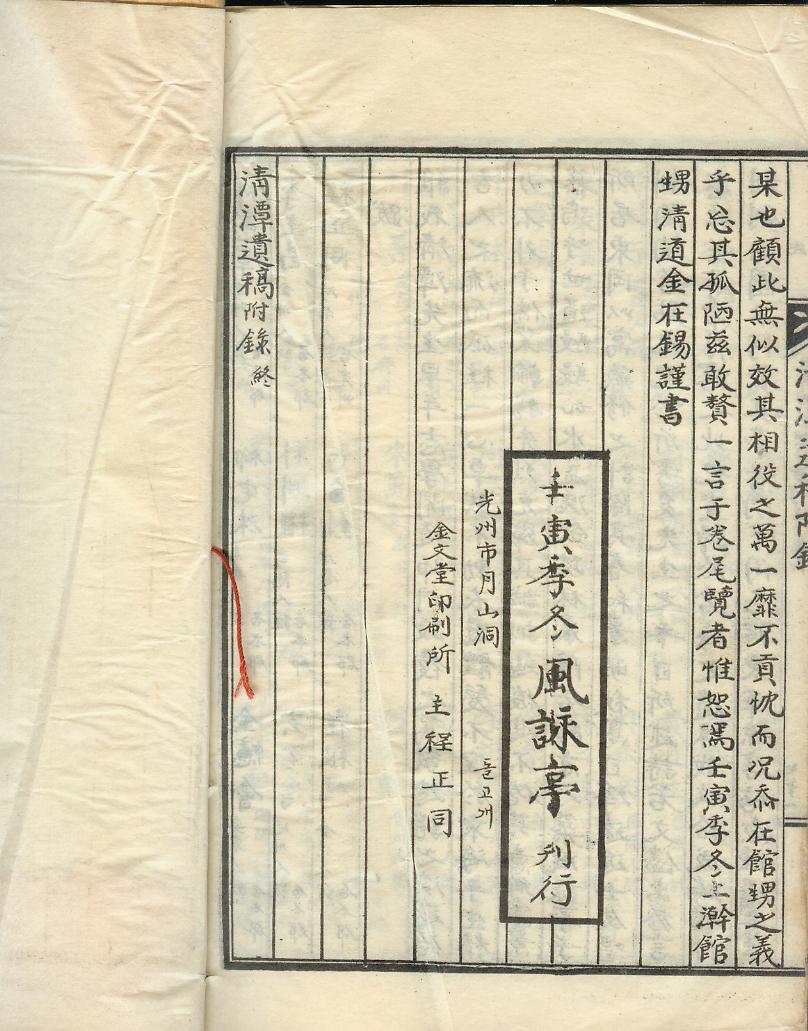 清潭遺稿附錄
某也顧此無似效其相役之萬一靡不貢忱而况忝在館甥之義
乎忘其孤陋玆敢贅一言于卷尾覽者惟恕焉壬寅季冬上澣館
甥淸道金在錫謹書
壬寅季冬風詠亭刊行
光州市月山洞 돌고개
金文堂印刷所 主 程正同
淸潭遺稿附錄終